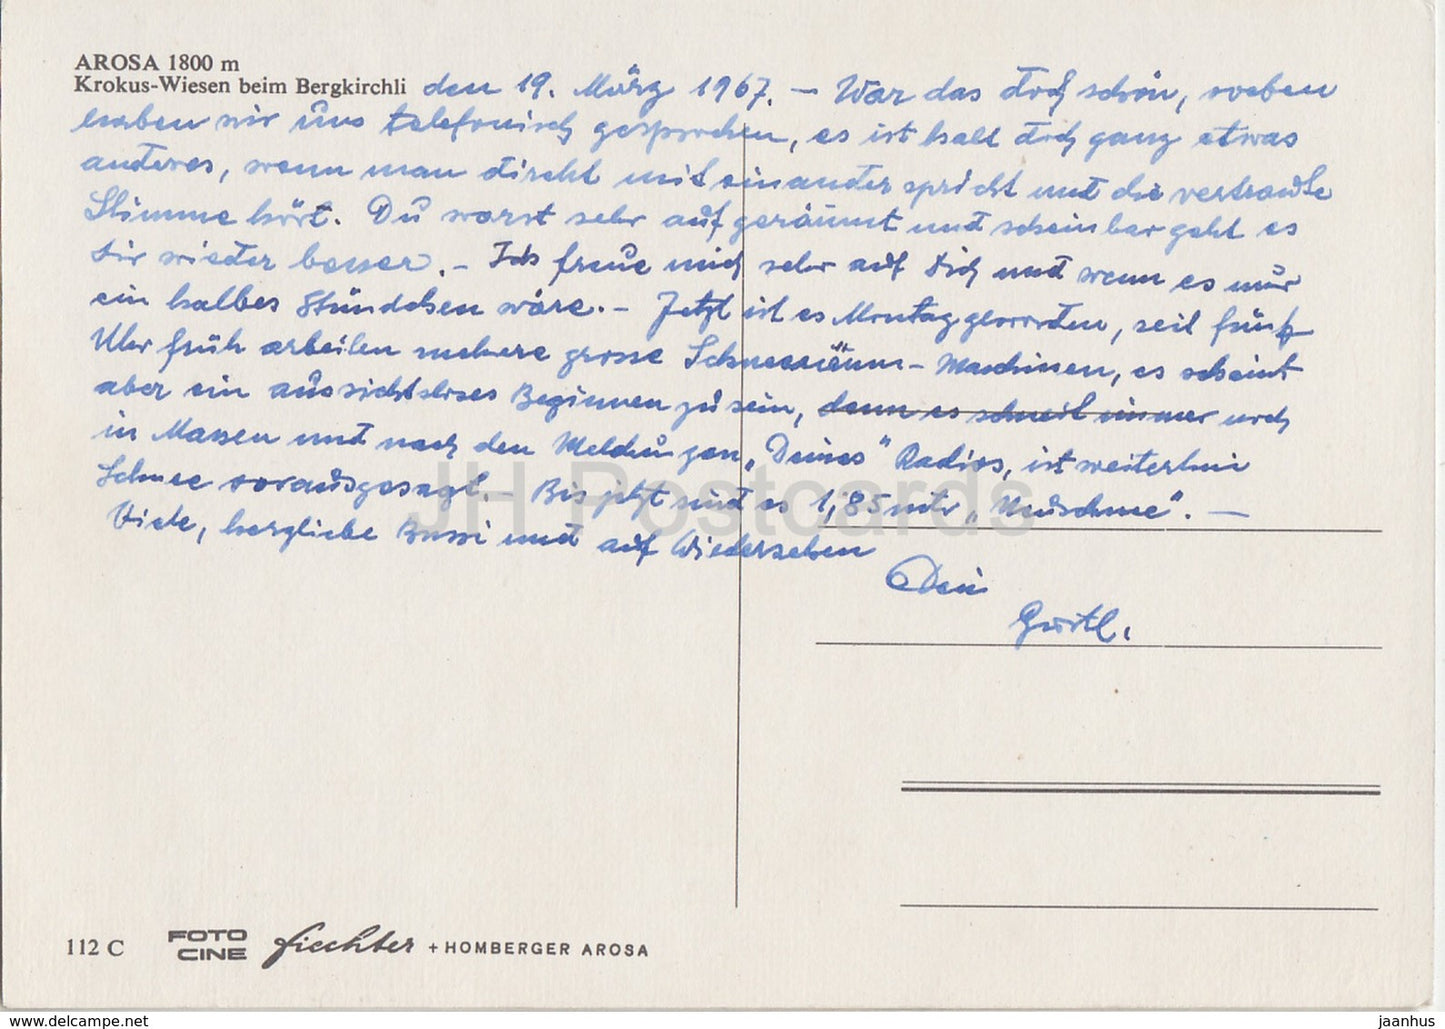 AROSA 1800 m
Krokus-Wiesen beim Bergkirchli
den 19. März 1967. – War das doch schön, soeben
haben wir uns telefonisch gesprochen, es ist halt doch ganz etwas
anderes, wenn man direkt miteinander spricht und die vertraute
Stimme hört. Du warst sehr aufgeräumt und scheinbar geht es
dir wieder besser. – Ich freue mich sehr auf dich und wenn es nur
ein halbes Stündchen wäre. – Jetzt ist es Montag geworden, seit fünf
Uhr früh arbeiten mehrere grosse Schneeräum-Maschinen, es scheint
aber ein aussichtsloses Beginnen zu sein, denn es schneit immer noch
in Massen und nach den Meldungen „Deines" Radios, ist weiterhin
Schnee vorausgesagt. – Bis jetzt sind es 1,85 mtr „Neuschnee". –
Viele, herzliche Bussi und auf Wiedersehen
Dein
JH Postcards
112 C FOTO CINE fiechter + HOMBERGER AROSA
www.delcampe.net
jaanhus